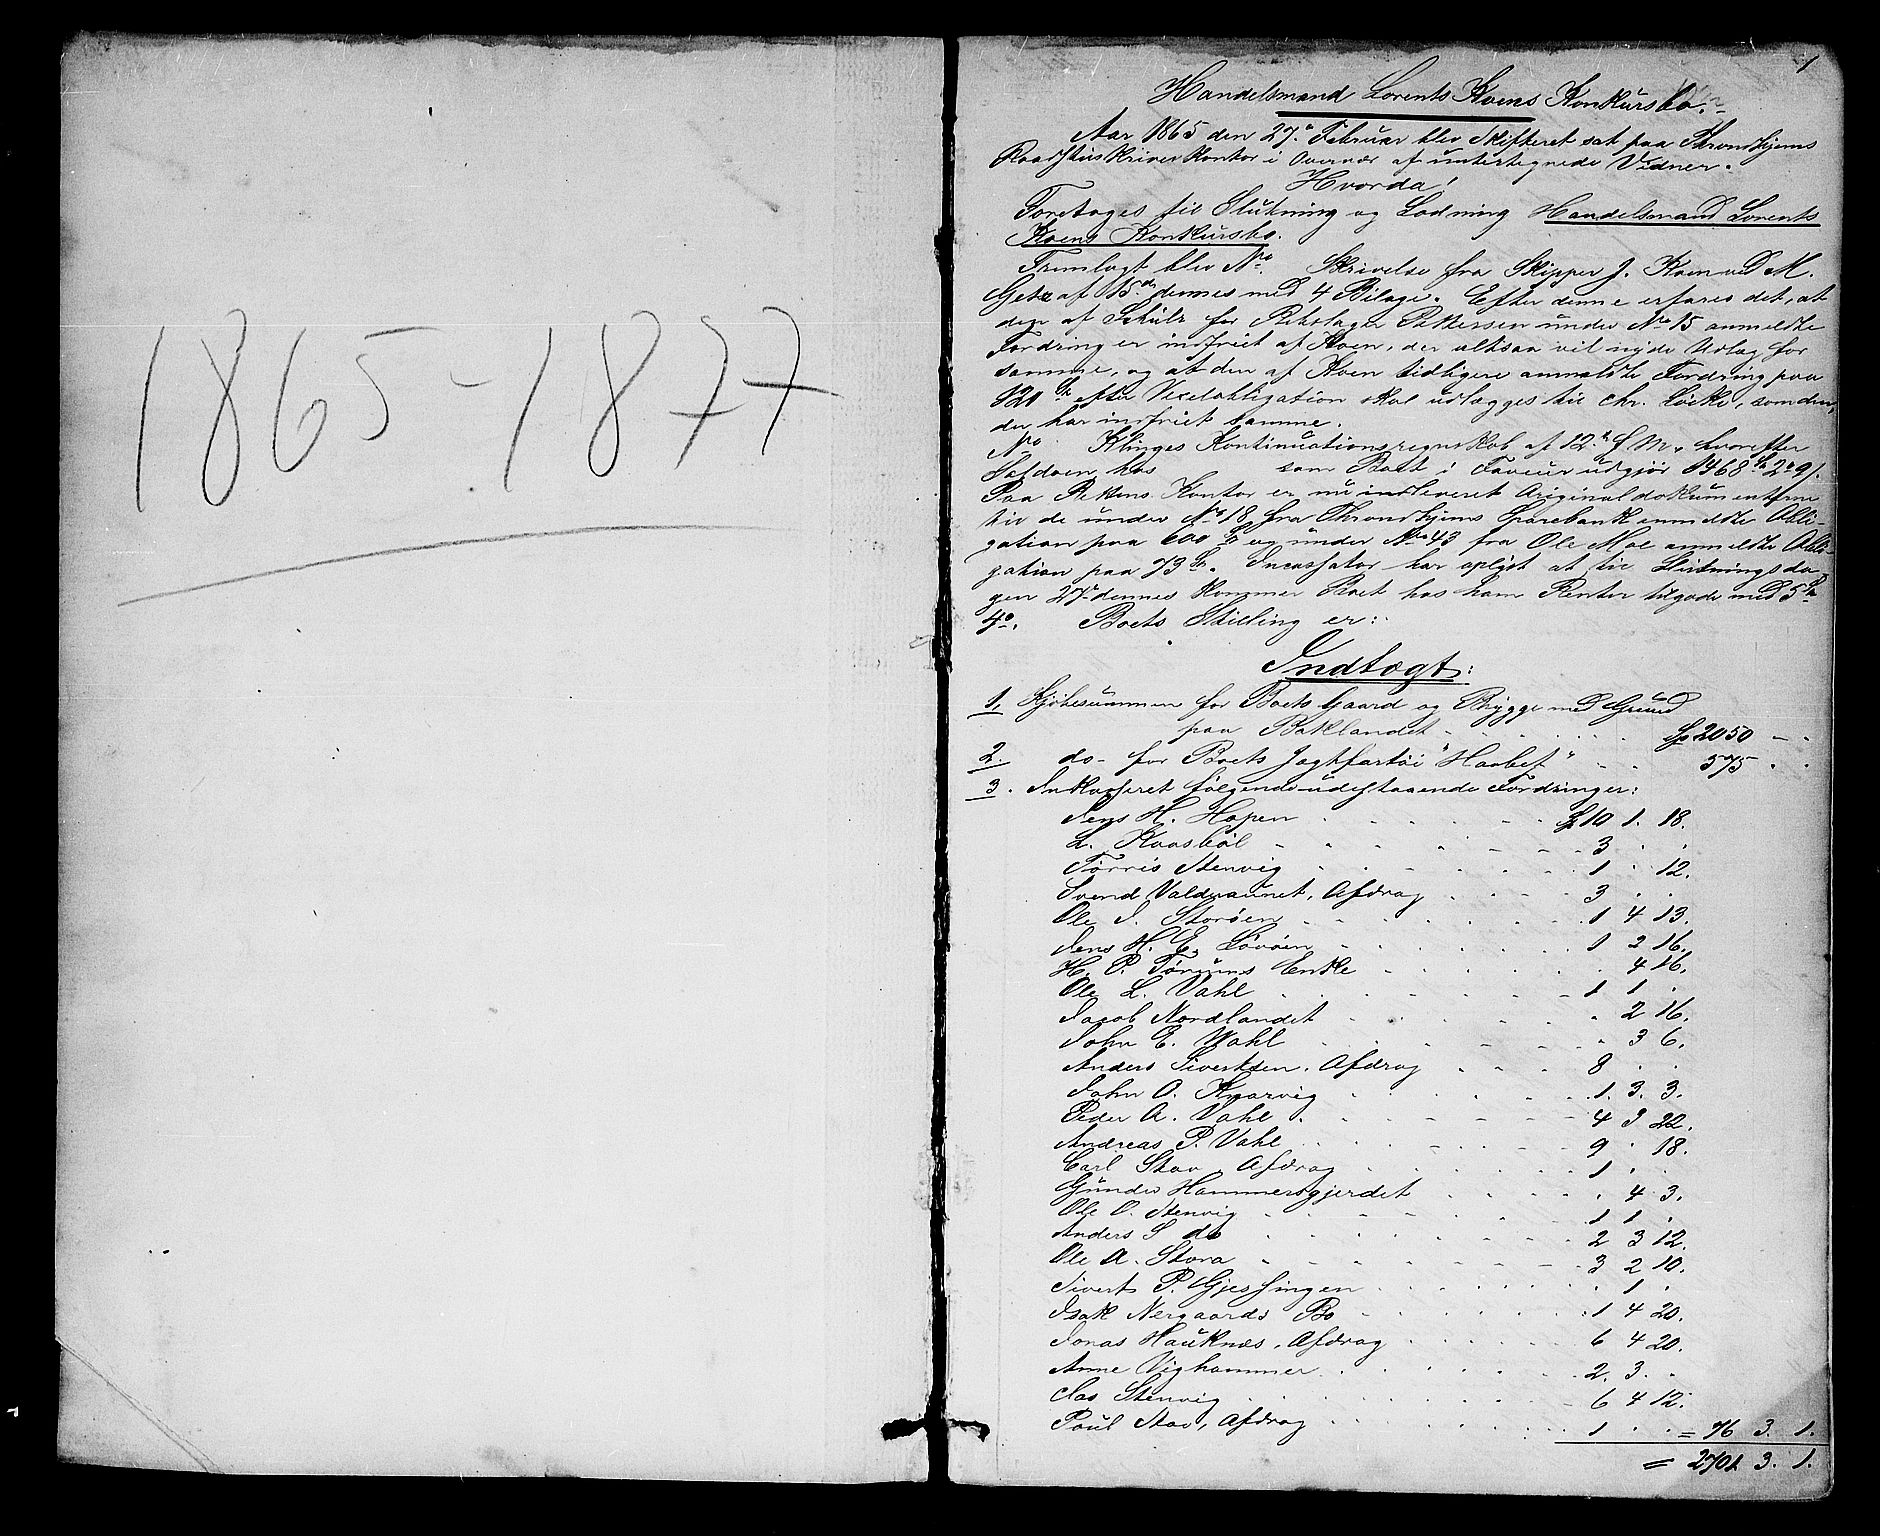 1865-1877
1
Handelsmand Lorents Koens Konkursbo.
Aar 1865 den 27. Februar blev Skifteret sat paa Throndhjems
Raadstuskriverkontor i Overvær af undertegnede Vidner.
Hvorda!
Foretoges til Slutning og Lodning Handelsmand Lorents
Koens Konkursbo.
Fremlagt blev No. Skrivelse fra Skipper J. Koen ved M.
Getz af 15de dennes med 4 Bilage. Efter denne erfares det, at
den af Schulz for Petersen under No 15 anmeldte
Fordring er indfriet af Koen, der altsaa vil nyde Udlæg for
samme, og at den af Koen tidligere anmeldte Fordring paa
120 Sp efter Vexelobligation skal udlægges til Chr. Löcke, som
der har indfriet samme.
No Klinges Kontinuationsregnskab af 12. f. M., hvorefter
Saldoen hos som Boet i Faveur udgjør 1468 Sp 2 91.
Paa Rettens Kontor er nu indleveret Originaldokumenterne
til de under No 18 fra Throndhjems Sparebank anmeldte Obli-
gation paa 600 Sp og under No 43 fra Ole Moe anmeldte Obli-
gation paa 73 Sp. Incassator har oplyst at til Slutningsda-
gen 27. dennes kommer Boet hos ham Renter tilgode med 5 Sp
4. Boets Stilling er:
Indtægt:
1. Kjøbesummen for Boets Gaard og Brygge med Grund
paa Baklandet Sp 2050 - -
2. do- for Boets Jagtfartøi "Haabet" 575 . .
3. Inkasseret følgende udestaaende Fordringer:
Jens H. Hopen Sp 10 1. 18.
L. Kaasbøl 3 . .
Tørris Stenvig 1 . 12.
Svend Valdraunet, Afdrag 3 . .
Ole J. Storøen 1 4 13.
Jens H. E. Løvøen 1 2 16.
H. P. Enke . 4 16.
Ole L. Vahl 1 1 .
Jacob Nordlandet . 2 16.
John E. Wahl . 3 6.
Anders Sivertsen. Afdrag 8 . .
John O. Knarvig 1. 3. 3.
Peder A. Vahl 4 3 22.
Andreas P. Vahl 9 . 18.
Carl Stav Afdrag 1 . .
Gunder Hammersgjerdet . 4 3.
Ole O. Stenvig 1 1 .
Anders S do 2 3 12.
Ole A. Stora 3 2 10.
Sivert P. Gjessingen . 1 .
Isak Nergaards Bo 1 4 20.
Jonas Hauknæs, Afdrag 6 4 20.
Anne Vighammer 2. 3. .
Stenvig 6 4 12.
Poul Stav, Afdrag 1 . . = 76 3. 1.
= 2701. 3. 1.